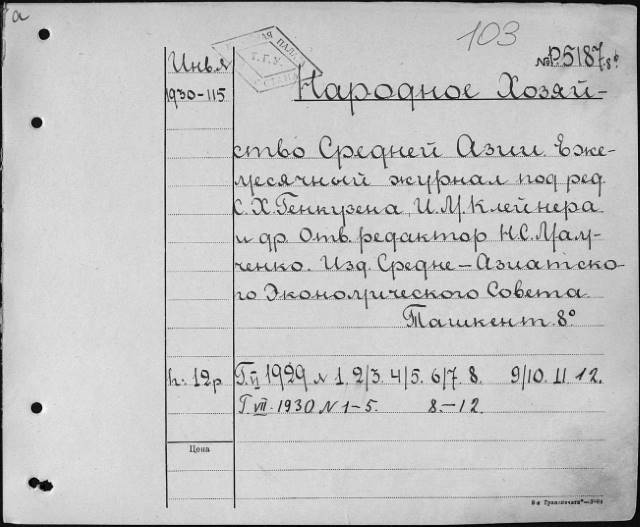 а
103
№ Р5187 8°
Инв.
1930-115
Народное Хозяй-
ство Средней Азии. Еже-
месячный журнал под ред.
С.Х. И.М. Клейнера
и др. Отв. редактор Н.С.
ченко. Изд. Средне-Азиатско-
го Экономического Совета.
Ташкент. 8°
ц: 12р. Г. VI 1929 № 1. 2/3. 4/5. 6/7. 8. 9/10. 11. 12.
Г. VII. 1930 № 1-5. 8.-12.
Цена